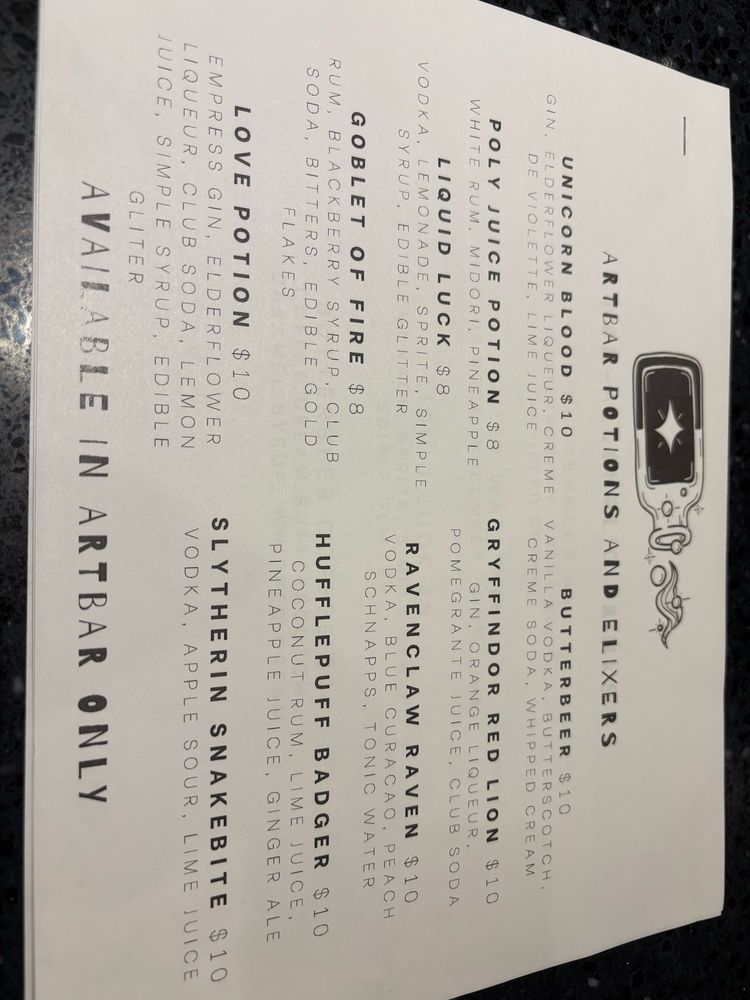 ARTBAR POTIONS AND ELIXERS
UNICORN BLOOD $10
GIN, ELDERFLOWER LIQUEUR, CREME
DE VIOLETTE, LIME JUICE
POLY JUICE POTION $8
WHITE RUM, MIDORI, PINEAPPLE
LIQUID LUCK $8
VODKA, LEMONADE, SPRITE, SIMPLE
SYRUP, EDIBLE GLITTER
GOBLET OF FIRE $8
RUM, BLACKBERRY SYRUP, CLUB
SODA, BITTERS, EDIBLE GOLD
FLAKES
LOVE POTION $10
EMPRESS GIN, ELDERFLOWER
LIQUEUR, CLUB SODA, LEMON
JUICE, SIMPLE SYRUP, EDIBLE
GLITER
BUTTERBEER $10
VANILLA VODKA, BUTTERSCOTCH,
CREME SODA, WHIPPED CREAM
GRYFFINDOR RED LION $10
GIN, ORANGE LIQUEUR,
POMEGRANTE JUICE, CLUB SODA
RAVENCLAW RAVEN $10
VODKA, BLUE CURACAO, PEACH
SCHNAPPS, TONIC WATER
HUFFLEPUFF BADGER $10
COCONUT RUM, LIME JUICE,
PINEAPPLE JUICE, GINGER ALE
SLYTHERIN SNAKEBITE $10
VODKA, APPLE SOUR, LIME JUICE
AVAILABLE IN ARTBAR ONLY